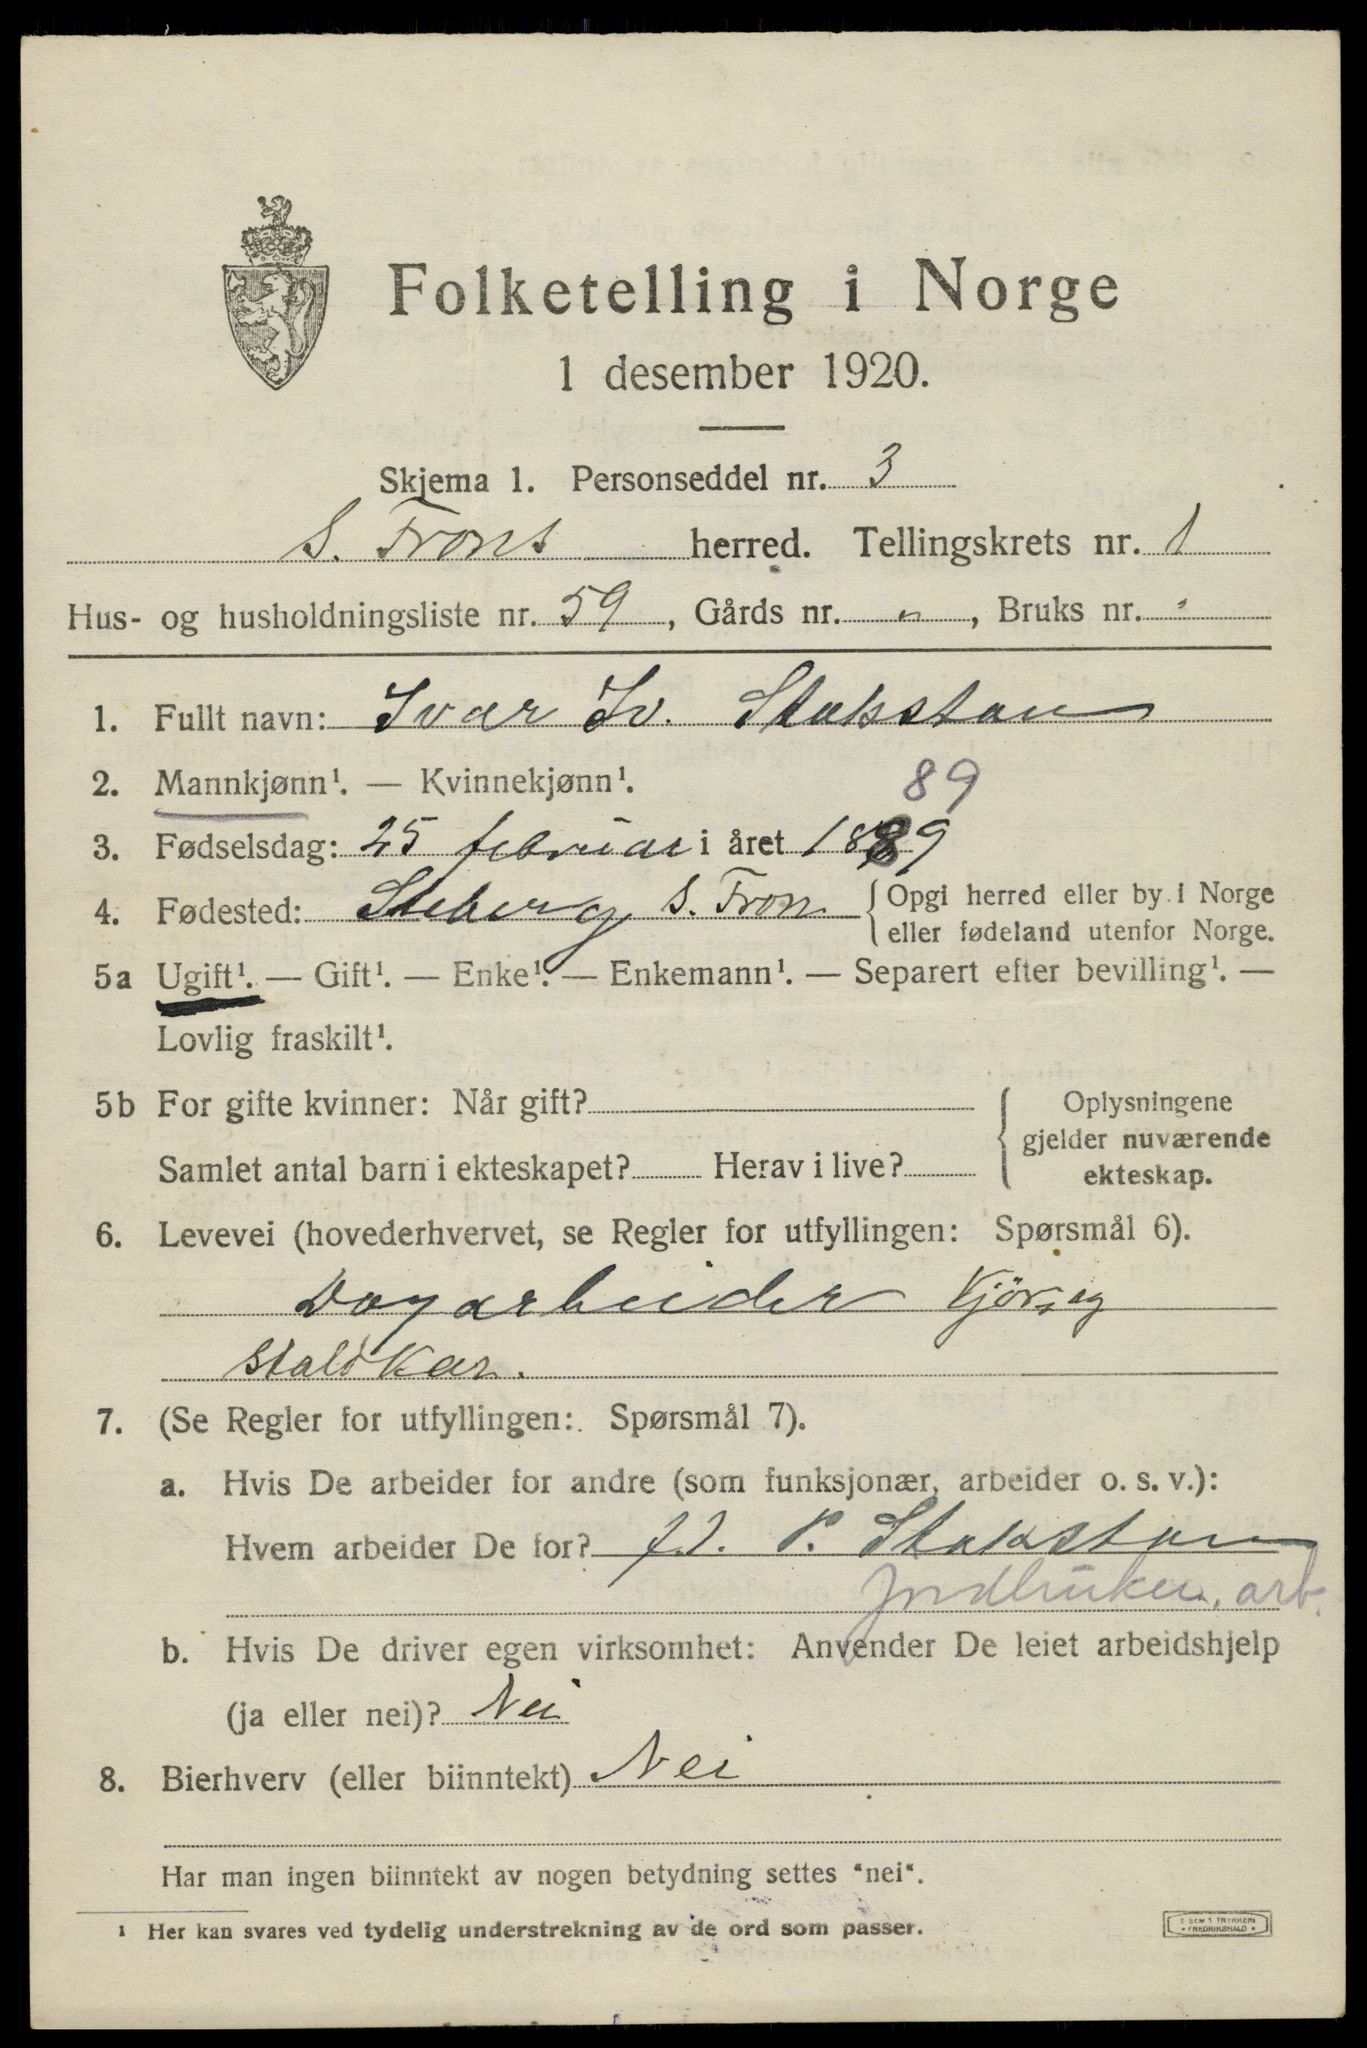 Folketelling i Norge
1 desember 1920.
Skjema 1. Personseddel nr. 3
S. Frons herred. Tellingskrets nr. 1
Hus- og husholdningsliste nr. 59, Gårds nr. „, Bruks nr.
1. Fullt navn: Ivar Iv. Stokstan
2. Mannkjønn¹. — Kvinnekjønn¹. 89
3. Fødselsdag: 25 februar i året 1889
4. Fødested: S. Fron {Opgi herred eller by i Norge
eller fødeland utenfor Norge.
5a Ugift¹. — Gift¹. — Enke¹. — Enkemann¹. — Separert efter bevilling¹. —
Lovlig fraskilt¹.
5b For gifte kvinner: Når gift? { Oplysningene
gjelder nuværende
Samlet antal barn i ekteskapet? Herav i live? ekteskap.
6. Levevei (hovederhvervet, se Regler for utfyllingen: Spørsmål 6).
Dagarbeider Kjöreg
Staldkar.
7. (Se Regler for utfyllingen: Spørsmål 7).
a. Hvis De arbeider for andre (som funksjonær, arbeider o. s. v.):
Hvem arbeider De for? P. Stokstan
Jordbruker. arb.
b. Hvis De driver egen virksomhet: Anvender De leiet arbeidshjelp
(ja eller nei)? Nei
8. Bierhverv (eller biinntekt) Nei
Har man ingen biinntekt av nogen betydning settes "nei".
¹ Her kan svares ved tydelig understrekning av de ord som passer.
E. SEM'S TRYKKERI
FREDRIKSHALD